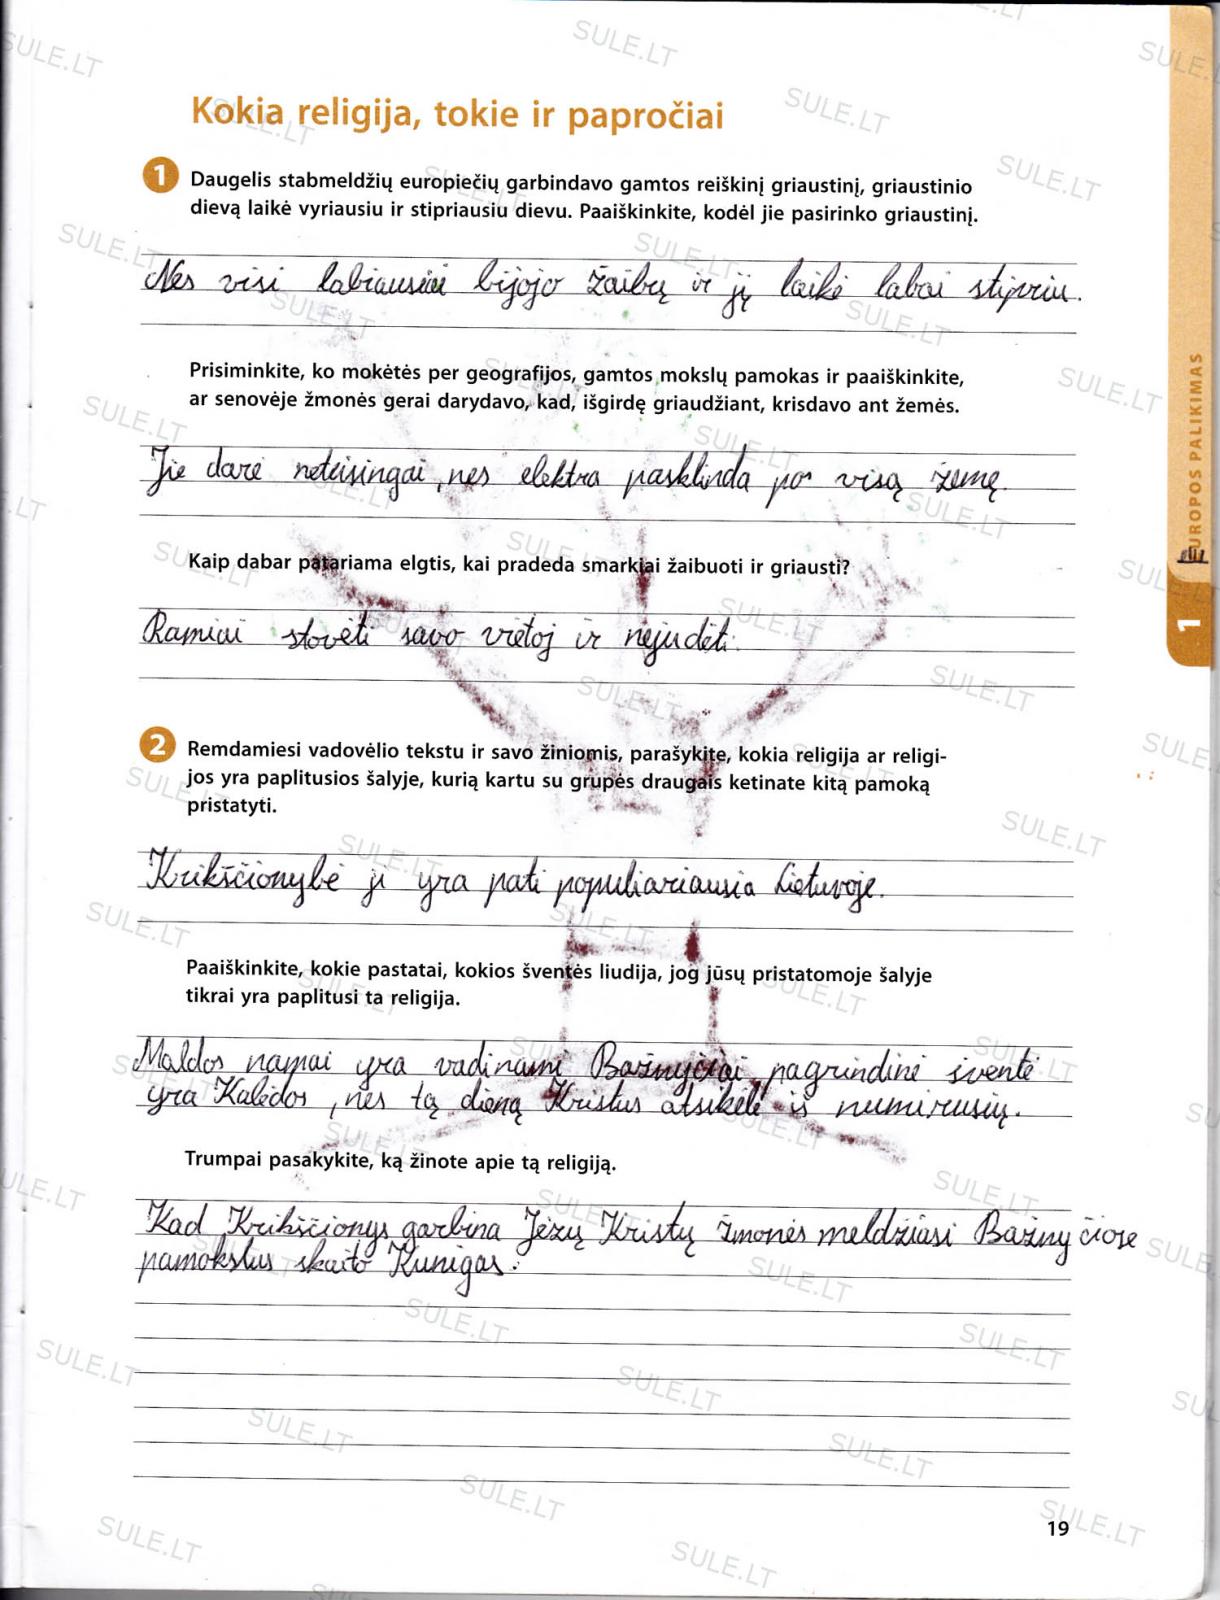 Kokia religija, tokie ir papročiai
1 Daugelis stabmeldžių europiečių garbindavo gamtos reiškinį griaustinį, griaustinio
dievą laikė vyriausiu ir stipriausiu dievu. Paaiškinkite, kodėl jie pasirinko griaustinį.
Nes visi labiausiai bijojo žaibų ir jį laikė labai stipriu.
Prisiminkite, ko mokėtės per geografijos, gamtos mokslų pamokas ir paaiškinkite,
ar senovėje žmonės gerai darydavo, kad, išgirdę griaudžiant, krisdavo ant žemės.
Jie darė neteisingai, nes elektra pasklinda po visą žemę.
Kaip dabar patariama elgtis, kai pradeda smarkiai žaibuoti ir griausti?
Ramiai stovėti savo vietoj ir nejudėti.
2 Remdamiesi vadovėlio tekstu ir savo žiniomis, parašykite, kokia religija ar religi-
jos yra paplitusios šalyje, kurią kartu su grupės draugais ketinate kitą pamoką
pristatyti.
Krikščionybė ji yra pati populiariausia Lietuvoje.
Paaiškinkite, kokie pastatai, kokios šventės liudija, jog jūsų pristatomoje šalyje
tikrai yra paplitusi ta religija.
Maldos namai yra vadinami Bažnyčiai, pagrindinė šventė
yra Kalėdos, nes tą dieną Kristus atsikėlė iš numirusių.
Trumpai pasakykite, ką žinote apie tą religiją.
Kad Krikščionys garbina Jėzų Kristų žmonės meldžiasi Bažnyčiose
pamokslus skaito Kunigas.
19
EUROPOS PALIKIMAS
1
SULE.LT